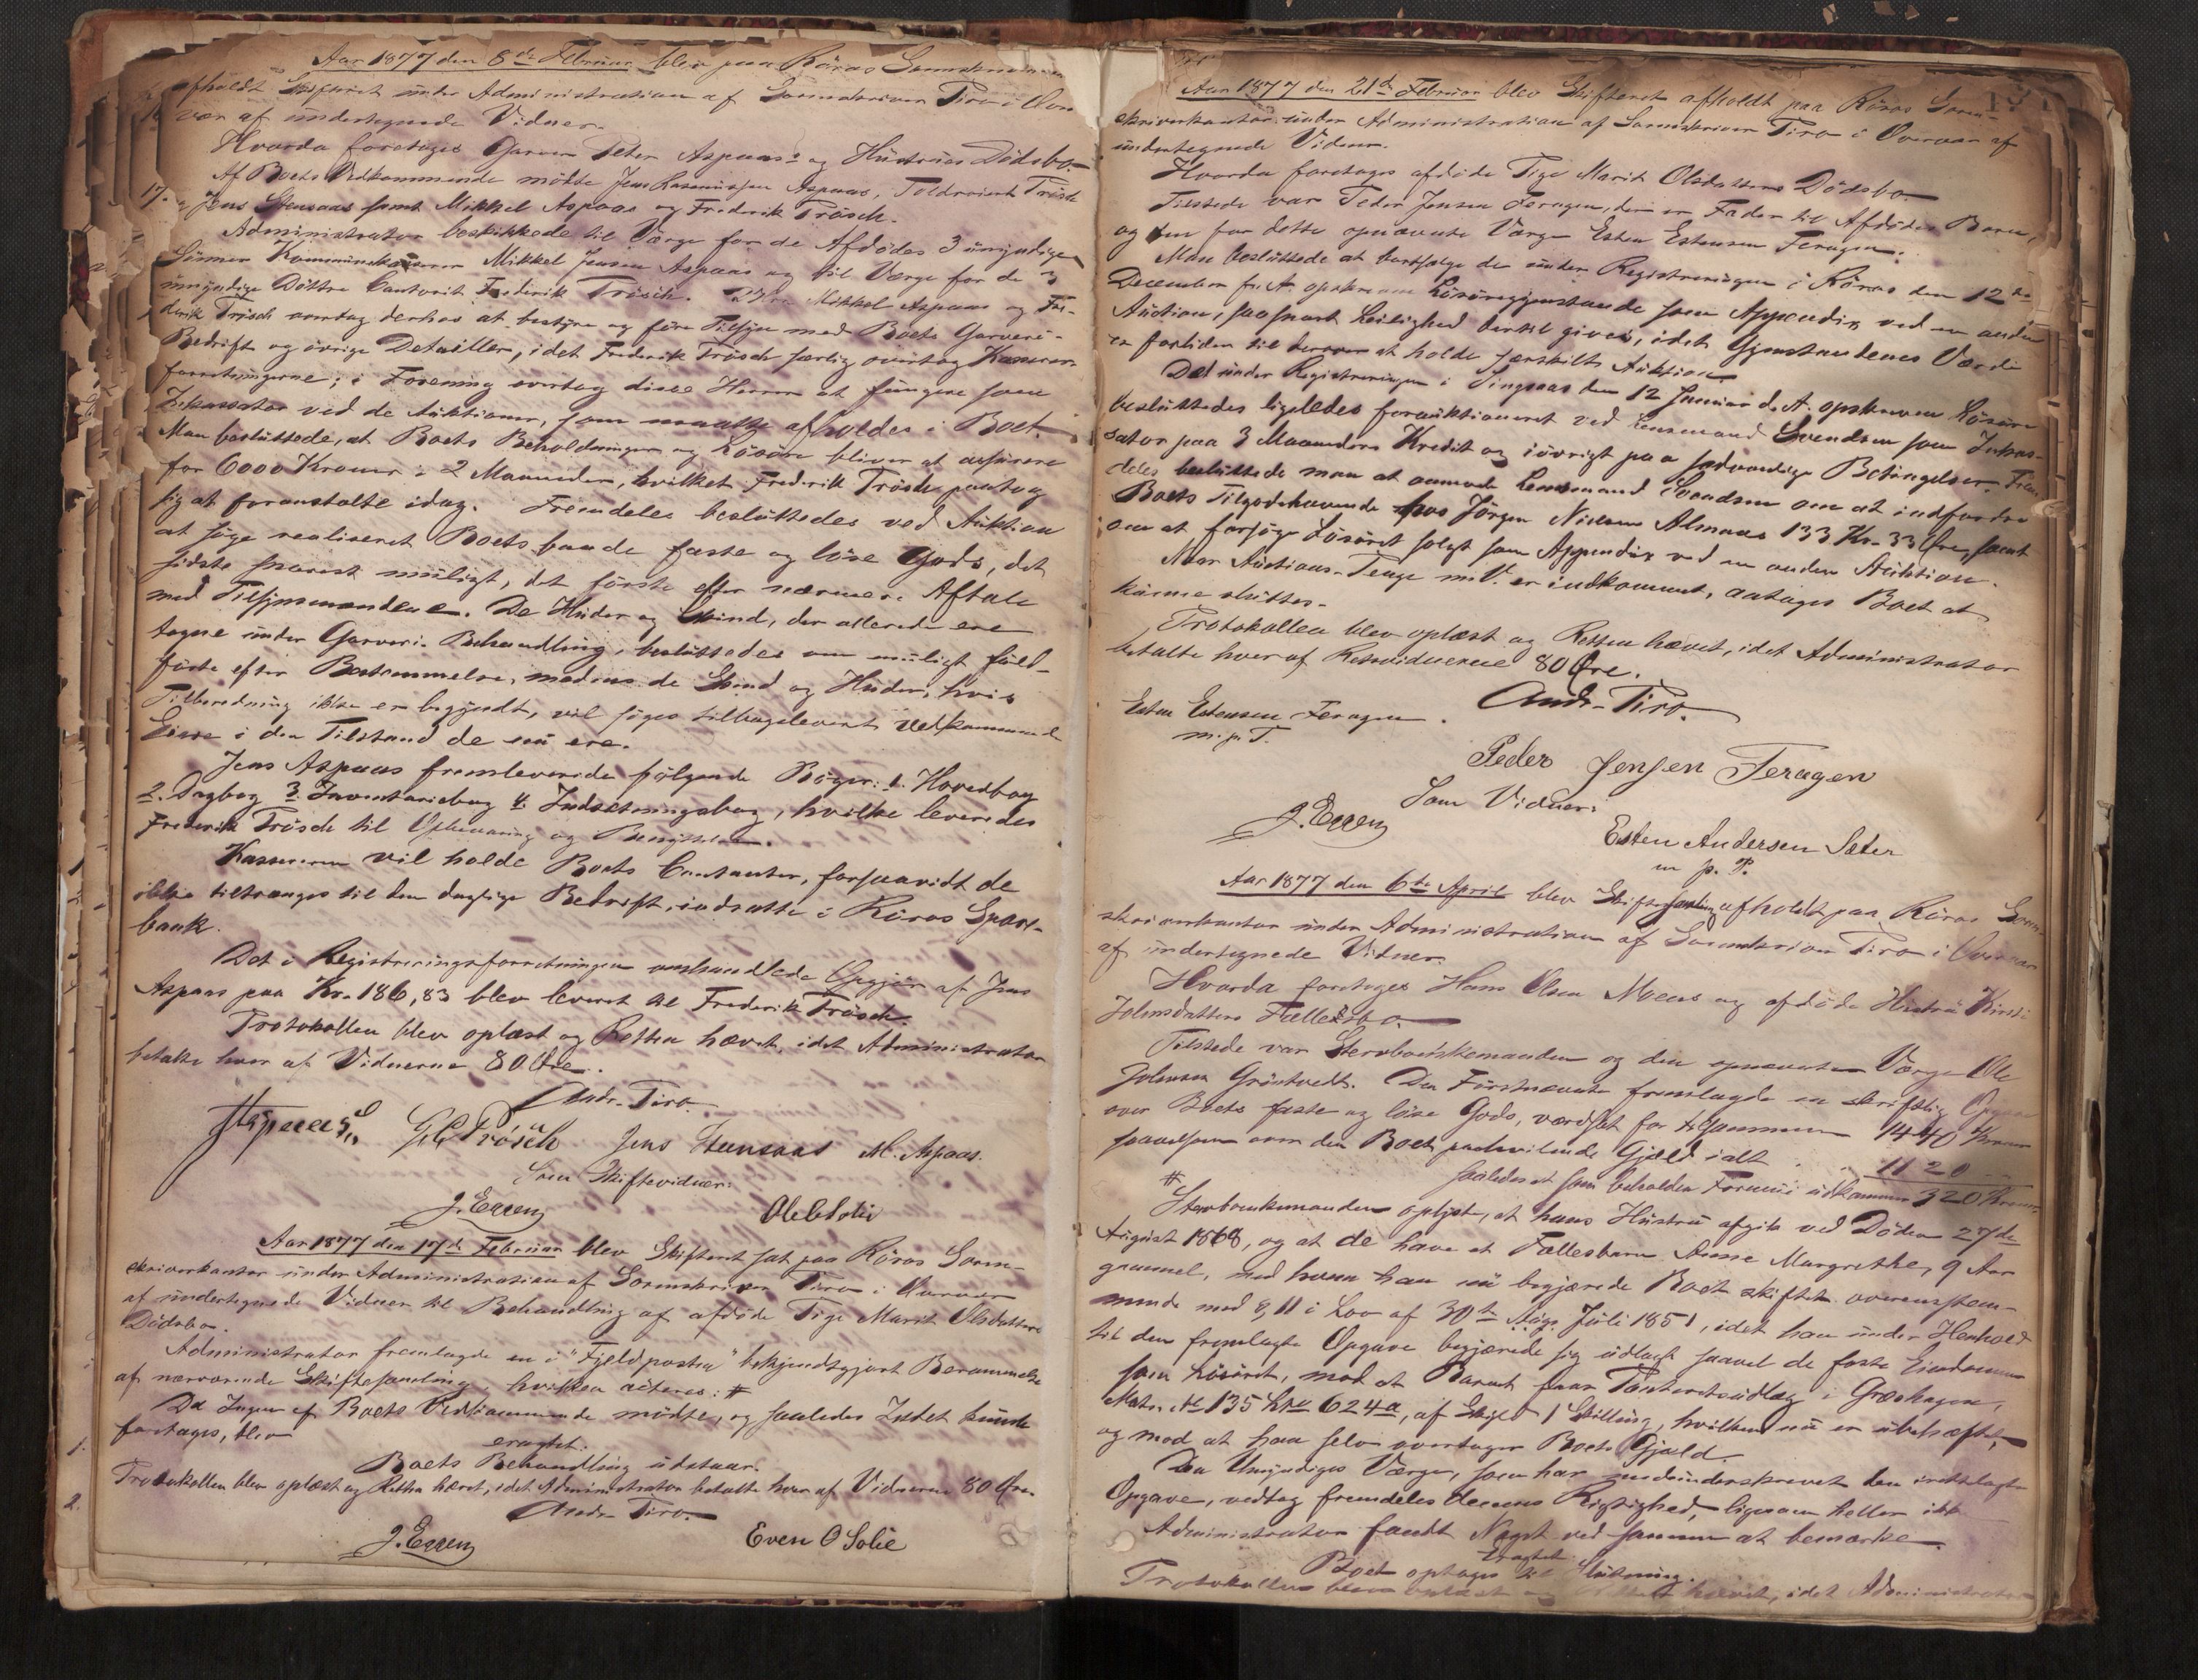 Aar 1877 den 8de Februar blev paa Röros Sorenskriver
afholdt Skifteret under Administration af Sorenskriver Tiro i Over
vær af undertegnede Vidner.
Hvorda foretoges Garver Peter Aspaas's og Hustrues Dödsbo.
Af Boets Vedkommende mödte Jens Rasmussen Aspaas, Toldassist Trösch
17. og Jens Stensaas samt Mikkel Aspaas og Frederik Trösch.
Administrator beskikkede til Værge for de Afdödes 3 umyndige
Sönner Mikkel Jensen Aspaas og til Værge for de
umyndige Döttre Frederik Trösch. Mikkel Aspaas og Fre-
derik Trösch overtog derhos at bestyre og före Tilsyn med Boets Garveri-
Bedrift og övrige Detailler, idet Frederik Trösch særlig overtog Kasserer
forretningerne; i Forening overtog disse Herrer at fungere som
Inkassator ved de Auktioner, som maatte afholdes i Boet.
Man besluttede, at Boets Beholdninger og Lösöre bliver at assurere
for 6000 Kroner i 2 Maaneder, hvilket Frederik Trösch paatog
sig at foranstalte idag. Fremdeles besluttedes ved Auktion
at söge realiseret Boets baade faste og löse Gods, det
sidste snarest muligt, det förste efter nærmere Aftale
med Tilsynsmændene. De Huder og Skind, der allerede ere
tagne under Garveri-Behandling, besluttedes om muligt fuld-
förte efter Bestemmelse, medens de Skind og Huder, hvis
Tilberedning ikke er begyndt, vil söges tilbageleveret Vedkommende
Eiere i den Tilstand de nu ere.
Jens Aspaas fremleverede fölgende Böger: 1. Hovedbog
2. Dagbog 3. Inventariebog 4. Indsætningsbog, hvilke leveredes
Frederik Trösch til Opbevaring og Benyttelse.
Kassereren vil holde Boets Contanter, forsaavidt de
ikke tiltrænges til den daglige Bedrift, indsatte i Röros Spare-
bank.
Det i Registreringsforretningen omhandlede Opgjör af Jens
Aspaas paa Kr. 186,83 blev leveret til Frederik Trösch.
Protokollen blev oplæst og Retten hævet, idet Administrator
betalte hver af Vidnerne 80 Öre.
Andr. Tiro.
J Aspaas F. Trösch Jens Stensaas M. Aspaas.
Som Skiftevidner:
J. Eggen Ole Solie
Aar 1877 den 17de Februar blev Skifteret sat paa Röros Soren-
skriverkontor under Administration af Sorenskriver Tiro i Overvær
af undertegnede Vidner til Behandling af afdöde Pige Marit Olsdatters
Dödsbo.
Administrator fremlagde en i "Fjeldposten" bekjendtgjort Berammelse
af nærværende Skiftesamling, hvilken acteres: #
Da Ingen af Boets Vedkommende mödte, og saaledes Intet kunde
foretages, blev
1. eragtet:
Boets Behandling udstaar.
2. Protokollen blev oplæst og Retten hævet, idet Administrator betalte hver af Vidnerne 80 Öre.
Andr. Tiro.
J. Eggen Even O Solie
Aar 1877 den 21de Februar blev Skifteret afholdt paa Röros Soren-
skriverkontor under Administration af Sorenskriver Tiro i Overvær af
undertegnede Vidner.
Hvorda foretoges afdöde Pige Marit Olsdatters Dödsbo.
Tilstede var Peder Jensen Feragen, der er Fader til Afdödes Barn,
og den for dette opnævnte Værge Esten Estensen Feragen.
Man besluttede at bortsælge de under Registreringen i Röros den 12te
December f. A. opskrevne Lösöregjenstande som Appendix ved en anden
Auction, saasnart Leilighed dertil gives, idet Gjenstandenes Værdi
er forliden til derover at holde særskilt Auktion.
Det under Registreringen i Singsaas den 12 Januar d. A. opskrevne Lösöre
besluttedes ligeledes forauktioneret ved Lensmand Svendsen som Inkas-
sator paa 3 Maaneders Kredit og iövrigt paa sædvanlige Betingelser. Frem-
deles besluttede man at anmode Lensmand Svendsen om at indfordre
Boets Tilgodehavende hos Jörgen Nielsen Almaas 133 Kr. 33 Öre, samt
om at forsöge Lösöret solgt som Appendix ved en anden Auktion.
Naar Auctions-Penge m.V. er indkommet, antages Boet at
kunne sluttes.
Protokollen blev oplæst og Retten hævet, idet Administrator
betalte hver af Retsvidnerne 80 Öre.
Andr. Tiro.
Esten Estensen Feragen
m. p. P.
Peder Jensen Feragen
Som Vidner:
J. Eggen Esten Andersen Sæter
m. p. P.
Aar 1877 den 6te April blev Skiftesamling afholdt paa Röros Soren-
skriverkontor under Administration af Sorenskriver Tiro i Overvær
af undertegnede Vidner.
Hvorda foretoges Hans Olsen Moens og afdöde Hustru Kirsti
Johnsdatters Fællesbo.
Tilstede var Sterbboeskemanden og den opnævnte Værge Ole
Johnsen Gröntvedt. Den Förstnævnte fremlagde en skriftlig Opgave
over Boets faste og löse Gods, værdsat for tilsammen 1440 Kroner
saavelsom over den Boet paahvilende Gjæld ialt 1120
saaledes at som beholden Formue udkommer 320 Kroner.
# Sterboeskemanden oplyste, at hans Hustru afgik ved Döden 27de
August 1868, og at de have et Fællesbarn Anne Margrethe, 9 Aar
gammel, med hvem han nu begjærede Boet skiftet overensstem-
mende med § 11 i Lov af 30te Juli 1851, idet han under Henhold
til den fremlagte Opgave begjærede sig udlagt saavel de faste Eiendomme
som Lösöret, mod at Barnet faar Panteretsudlæg i Græshagen,
Matr. No 135 Lbno 624a, af Skyld 1 Skilling, hvilken nu er ubehæftet,
og mod at han selv overtager Boets Gjæld.
Den Umyndiges Værge, som har medunderskrevet den irettelagte
Opgave, vedtog fremdeles dennes Rigtighed, ligesom heller ikke
Administrator fandt Noget ved samme at bemærke.
Eragtet:
Boet optages til Slutning.
Protokollen blev oplæst og Retten hævet, idet Administrator